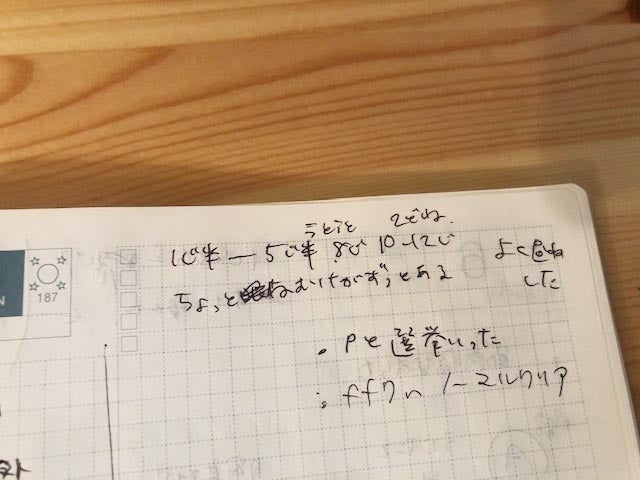 うとうと 2どね.
1じ半 — 5じ半 8じ 10-12じ よく昼ね
ちょっと ねむけがずっとある した
・Pと選挙いった
・ff7n ノーマルクリア
N
187
スト